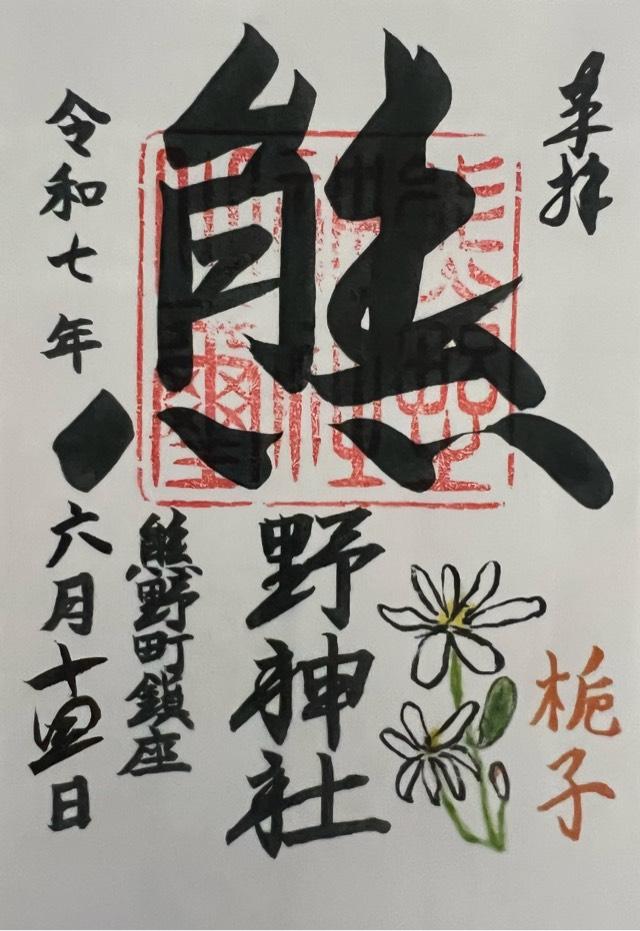 奉拝
梔子
熊野神社
熊野町鎮座
令和七年六月十四日